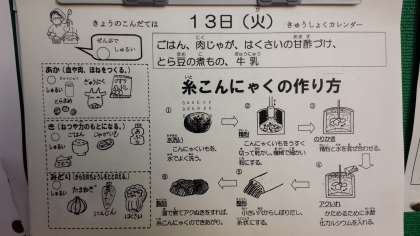 きょうのこんだては
13日(火)
きゅうしょくカレンダー
ぜんぶで
しゅるい
ごはん、肉じゃが、はくさいの甘酢づけ、
とら豆の煮もの、牛乳
あか(血や肉、ほねをつくる。)
しゅるい
ぎゅうにく
とらまめ
き(ねつや力のもとになる。)
ごはん
じゃがいも
しゅるい
みどり
しゅるい
たまねぎ
にんじん
はくさい
糸こんにゃくの作り方
①
水洗い
こんにゃくいもを、
水でよく洗う。
②
こんにゃくいもをうすく
切って乾かし、機械で細かい
粉にする。
③
のりかき
④
アクいれ
かためるために水酸
化カルシウムを入れる。
⑤
⑥
湯で煮てアクぬきをすれば、
糸こんにゃくのできあがり。